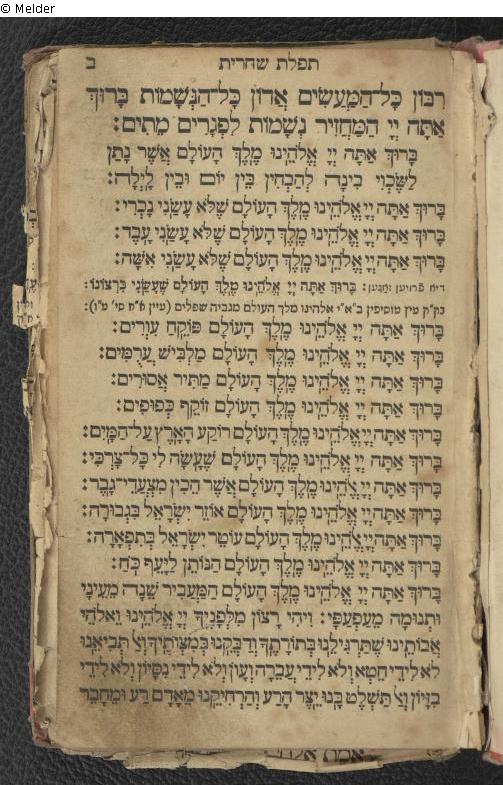 © Melder
תפלת שחרית ב
רִבּוֹן כָּל־הַמַּעֲשִׂים אֲדוֹן כָּל־הַנְּשָׁמוֹת בָּרוּךְ
אַתָּה יְיָ הַמַּחֲזִיר נְשָׁמוֹת לִפְגָרִים מֵתִים:
בָּרוּךְ אַתָּה יְיָ אֱלֹהֵינוּ מֶלֶךְ הָעוֹלָם אֲשֶׁר נָתַן
לַשֶּׂכְוִי בִינָה לְהַבְחִין בֵּין יוֹם וּבֵין לָיְלָה:
בָּרוּךְ אַתָּה יְיָ אֱלֹהֵינוּ מֶלֶךְ הָעוֹלָם שֶׁלֹּא עָשַׂנִי נָכְרִי:
בָּרוּךְ אַתָּה יְיָ אֱלֹהֵינוּ מֶלֶךְ הָעוֹלָם שֶׁלֹּא עָשַׂנִי עָבֶד:
בָּרוּךְ אַתָּה יְיָ אֱלֹהֵינוּ מֶלֶךְ הָעוֹלָם שֶׁלֹּא עָשַׂנִי אִשָּׁה:
דיא פרויען זאגען: בָּרוּךְ אַתָּה יְיָ אֱלֹהֵינוּ מֶלֶךְ הָעוֹלָם שֶׁעָשַׂנִי כִּרְצוֹנוֹ:
מין מוסיפין ב"א"י אלהינו מלך העולם מגביה שפלים (עיין א"ח סי' מ"ו):
בָּרוּךְ אַתָּה יְיָ אֱלֹהֵינוּ מֶלֶךְ הָעוֹלָם פּוֹקֵחַ עִוְרִים:
בָּרוּךְ אַתָּה יְיָ אֱלֹהֵינוּ מֶלֶךְ הָעוֹלָם מַלְבִּישׁ עֲרֻמִּים:
בָּרוּךְ אַתָּה יְיָ אֱלֹהֵינוּ מֶלֶךְ הָעוֹלָם מַתִּיר אֲסוּרִים:
בָּרוּךְ אַתָּה יְיָ אֱלֹהֵינוּ מֶלֶךְ הָעוֹלָם זוֹקֵף כְּפוּפִים:
בָּרוּךְ אַתָּה יְיָ אֱלֹהֵינוּ מֶלֶךְ הָעוֹלָם רוֹקַע הָאָרֶץ עַל־הַמָּיִם:
בָּרוּךְ אַתָּה יְיָ אֱלֹהֵינוּ מֶלֶךְ הָעוֹלָם שֶׁעָשָׂה לִי כָּל־צָרְכִּי:
בָּרוּךְ אַתָּה יְיָ אֱלֹהֵינוּ מֶלֶךְ הָעוֹלָם אֲשֶׁר הֵכִין מִצְעֲדֵי־גָבֶר:
בָּרוּךְ אַתָּה יְיָ אֱלֹהֵינוּ מֶלֶךְ הָעוֹלָם אוֹזֵר יִשְׂרָאֵל בִּגְבוּרָה:
בָּרוּךְ אַתָּה יְיָ אֱלֹהֵינוּ מֶלֶךְ הָעוֹלָם עוֹטֵר יִשְׂרָאֵל בְּתִפְאָרָה:
בָּרוּךְ אַתָּה יְיָ אֱלֹהֵינוּ מֶלֶךְ הָעוֹלָם הַנּוֹתֵן לַיָּעֵף כֹּחַ:
בָּרוּךְ אַתָּה יְיָ אֱלֹהֵינוּ מֶלֶךְ הָעוֹלָם הַמַּעֲבִיר שֵׁנָה מֵעֵינָי
וּתְנוּמָה מֵעַפְעַפָּי: וִיהִי רָצוֹן מִלְּפָנֶיךָ יְיָ אֱלֹהֵינוּ וֵאלֹהֵי
אֲבוֹתֵינוּ שֶׁתַּרְגִּילֵנוּ בְּתוֹרָתֶךָ וְדַבְּקֵנוּ בְּמִצְוֹתֶיךָ וְאַל תְּבִיאֵנוּ
לֹא לִידֵי חֵטְא וְלֹא לִידֵי עֲבֵרָה וְעָוֹן וְלֹא לִידֵי נִסָּיוֹן וְלֹא לִידֵי
בִזָּיוֹן וְאַל תַּשְׁלֶט בָּנוּ יֵצֶר הָרָע וְהַרְחִיקֵנוּ מֵאָדָם רָע וּמֵחָבֵר